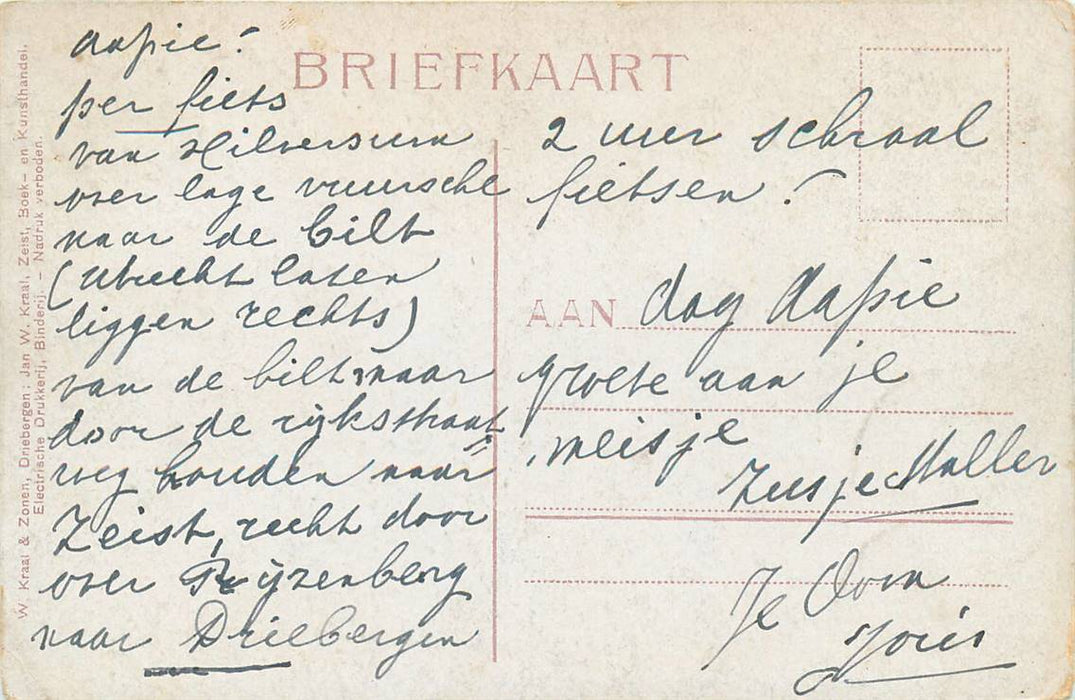 W. Kraal & Zonen, Driebergen; Jan W. Kraal, Zeist, Boek- en Kunsthandel,
Electrische Drukkerij, Binderij. – Nadruk verboden.
BRIEFKAART
Aapie!
per fiets
van Hilversum
over lage vuursche
naar de bilt
(Utrecht laten
liggen rechts)
van de bilt, naar
door de rijkstraat
weg houden naar
Zeist, recht door
over Rijzenberg
naar Driebergen
2 uur schraal
fietsen!
AAN dag Aapie
groete aan je
meisje
Zusje Muller
Je Oom
Joris